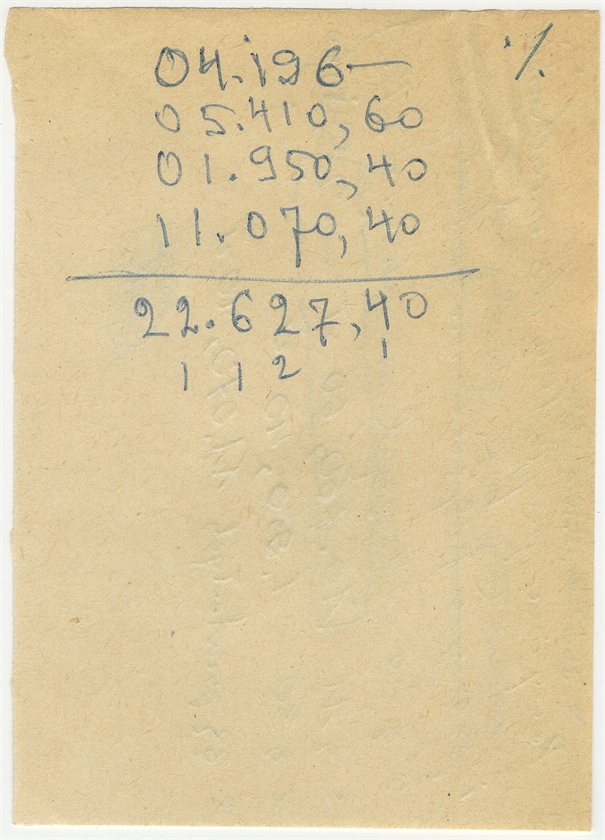 ·/.
04.196—
05.410,60
01.950,40
11.070,40
22.627,40
1 1 2 1